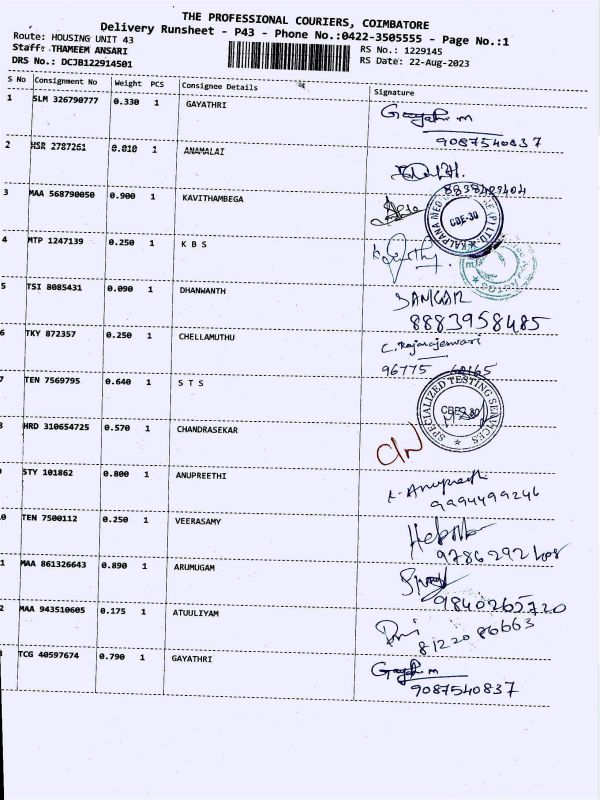 THE PROFESSIONAL COURIERS, COIMBATORE
Delivery Runsheet - P43 - Phone No.:0422-3505555 - Page No.:1
Route: HOUSING UNIT 43
Staff: THAMEEM ANSARI
DRS No.: DCJB122914501
RS No.: 1229145
RS Date: 22-Aug-2023
S No Consignment No Weight PCS Consignee Details Signature
1 SLM 326790777 0.330 1 GAYATHRI Gayathri m
9087540837
2 HSR 2787261 0.010 1 ANAMALAI
8838489404
3 MAA 568790050 0.900 1 KAVITHAMBEGA
CBE-30
4 MTP 1247139 0.250 1 K B S
5 TSI 8085431 0.090 1 DHANWANTH SANKAR
8883958485
6 TKY 872357 0.250 1 CHELLAMUTHU C. Rajarajeswari
96775 68165
7 TEN 7569795 0.640 1 S T S
SPECIALIZED TESTING SERVICES
HRD 310654725 0.570 1 CHANDRASEKAR
STY 101862 0.800 1 ANUPREETHI K. Anupreethi
9994499246
0 TEN 7500112 0.250 1 VEERASAMY
1 MAA 861326643 0.890 1 ARUMUGAM
9840265720
2 MAA 943510605 0.175 1 ATUULIYAM
8122086663
TCG 40597674 0.790 1 GAYATHRI Gayathri m
9087540837